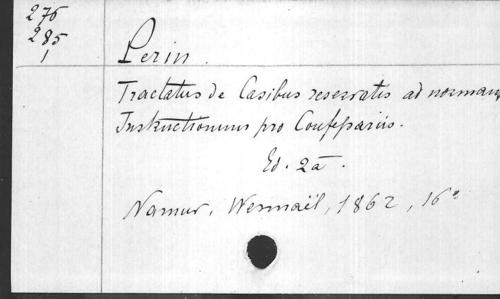 276
285
1
Perin.
Tractatus de Casibus reservatis ad normam
Instructionum pro Confessariis.
Ed. 2a.
Namur, Wesmaël, 1862, 16°